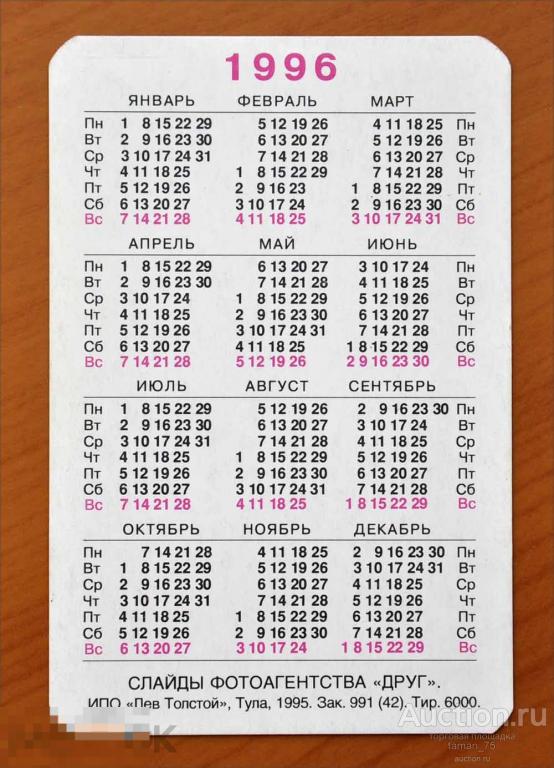 1996
ЯНВАРЬ ФЕВРАЛЬ МАРТ
Пн 1 8 15 22 29 5 12 19 26 4 11 18 25 Пн
Вт 2 9 16 23 30 6 13 20 27 5 12 19 26 Вт
Ср 3 10 17 24 31 7 14 21 28 6 13 20 27 Ср
Чт 4 11 18 25 1 8 15 22 29 7 14 21 28 Чт
Пт 5 12 19 26 2 9 16 23 1 8 15 22 29 Пт
Сб 6 13 20 27 3 10 17 24 2 9 16 23 30 Сб
Вс 7 14 21 28 4 11 18 25 3 10 17 24 31 Вс
АПРЕЛЬ МАЙ ИЮНЬ
Пн 1 8 15 22 29 6 13 20 27 3 10 17 24 Пн
Вт 2 9 16 23 30 7 14 21 28 4 11 18 25 Вт
Ср 3 10 17 24 1 8 15 22 29 5 12 19 26 Ср
Чт 4 11 18 25 2 9 16 23 30 6 13 20 27 Чт
Пт 5 12 19 26 3 10 17 24 31 7 14 21 28 Пт
Сб 6 13 20 27 4 11 18 25 1 8 15 22 29 Сб
Вс 7 14 21 28 5 12 19 26 2 9 16 23 30 Вс
ИЮЛЬ АВГУСТ СЕНТЯБРЬ
Пн 1 8 15 22 29 5 12 19 26 2 9 16 23 30 Пн
Вт 2 9 16 23 30 6 13 20 27 3 10 17 24 Вт
Ср 3 10 17 24 31 7 14 21 28 4 11 18 25 Ср
Чт 4 11 18 25 1 8 15 22 29 5 12 19 26 Чт
Пт 5 12 19 26 2 9 16 23 30 6 13 20 27 Пт
Сб 6 13 20 27 3 10 17 24 31 7 14 21 28 Сб
Вс 7 14 21 28 4 11 18 25 1 8 15 22 29 Вс
ОКТЯБРЬ НОЯБРЬ ДЕКАБРЬ
Пн 7 14 21 28 4 11 18 25 2 9 16 23 30 Пн
Вт 1 8 15 22 29 5 12 19 26 3 10 17 24 31 Вт
Ср 2 9 16 23 30 6 13 20 27 4 11 18 25 Ср
Чт 3 10 17 24 31 7 14 21 28 5 12 19 26 Чт
Пт 4 11 18 25 1 8 15 22 29 6 13 20 27 Пт
Сб 5 12 19 26 2 9 16 23 30 7 14 21 28 Сб
Вс 6 13 20 27 3 10 17 24 1 8 15 22 29 Вс
СЛАЙДЫ ФОТОАГЕНТСТВА «ДРУГ».
ИПО «Лев Толстой», Тула, 1995. Зак. 991 (42). Тир. 6000.
Auction.ru
торговая площадка
taman_75
auction.ru